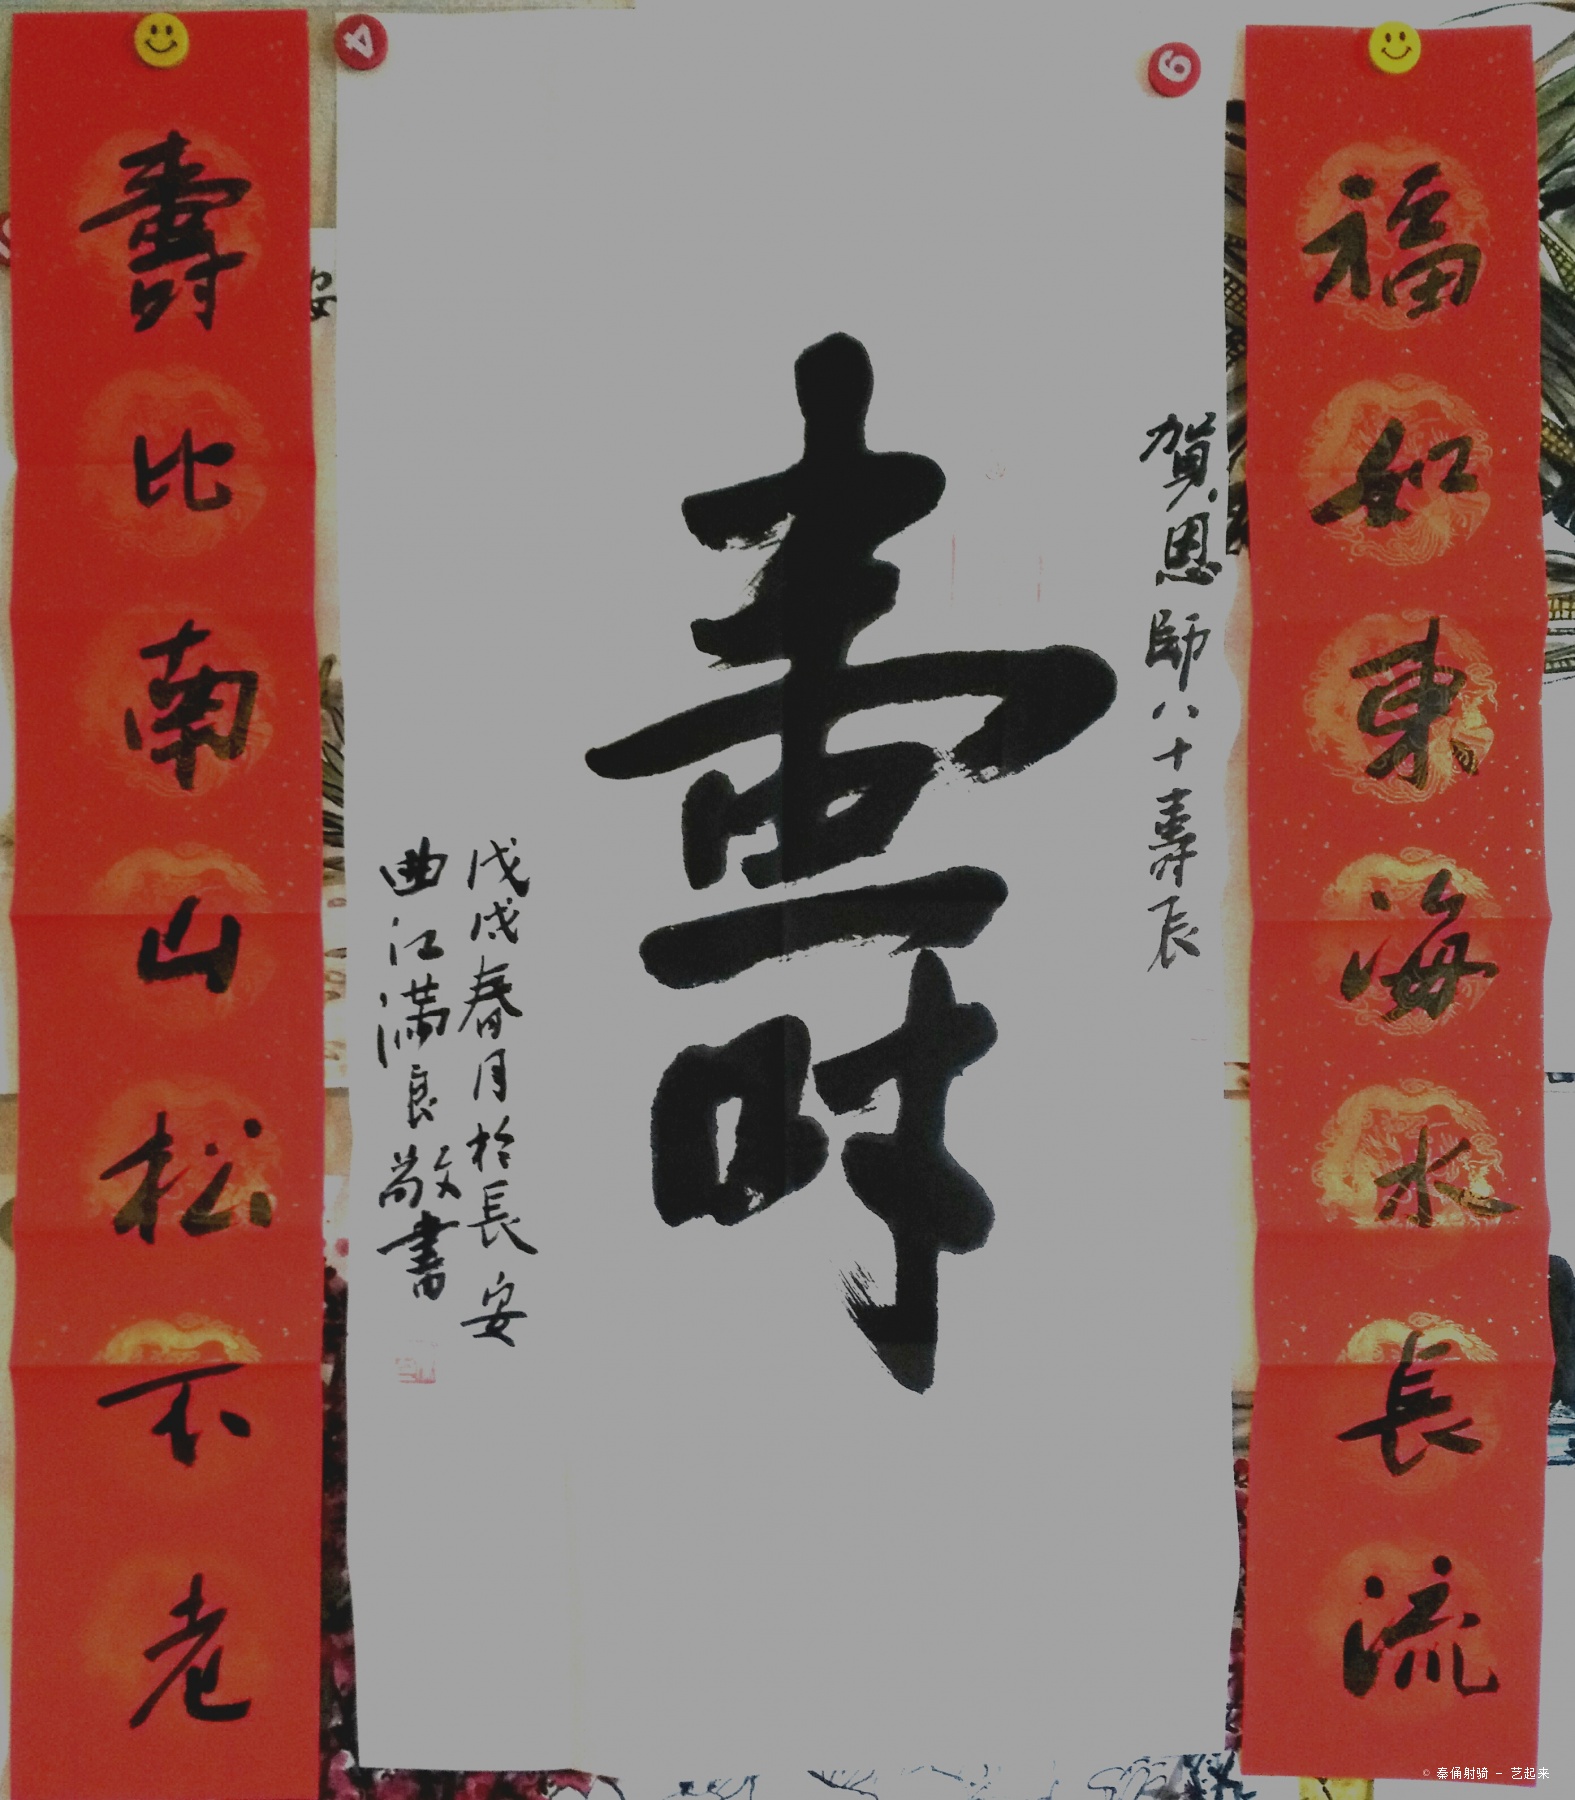 福如東海水長流
賀恩師八十壽辰
壽
戊戌春月於長安
曲江滿良敬書
壽比南山松不老
安
4
6
© 秦俑射骑 - 艺起来